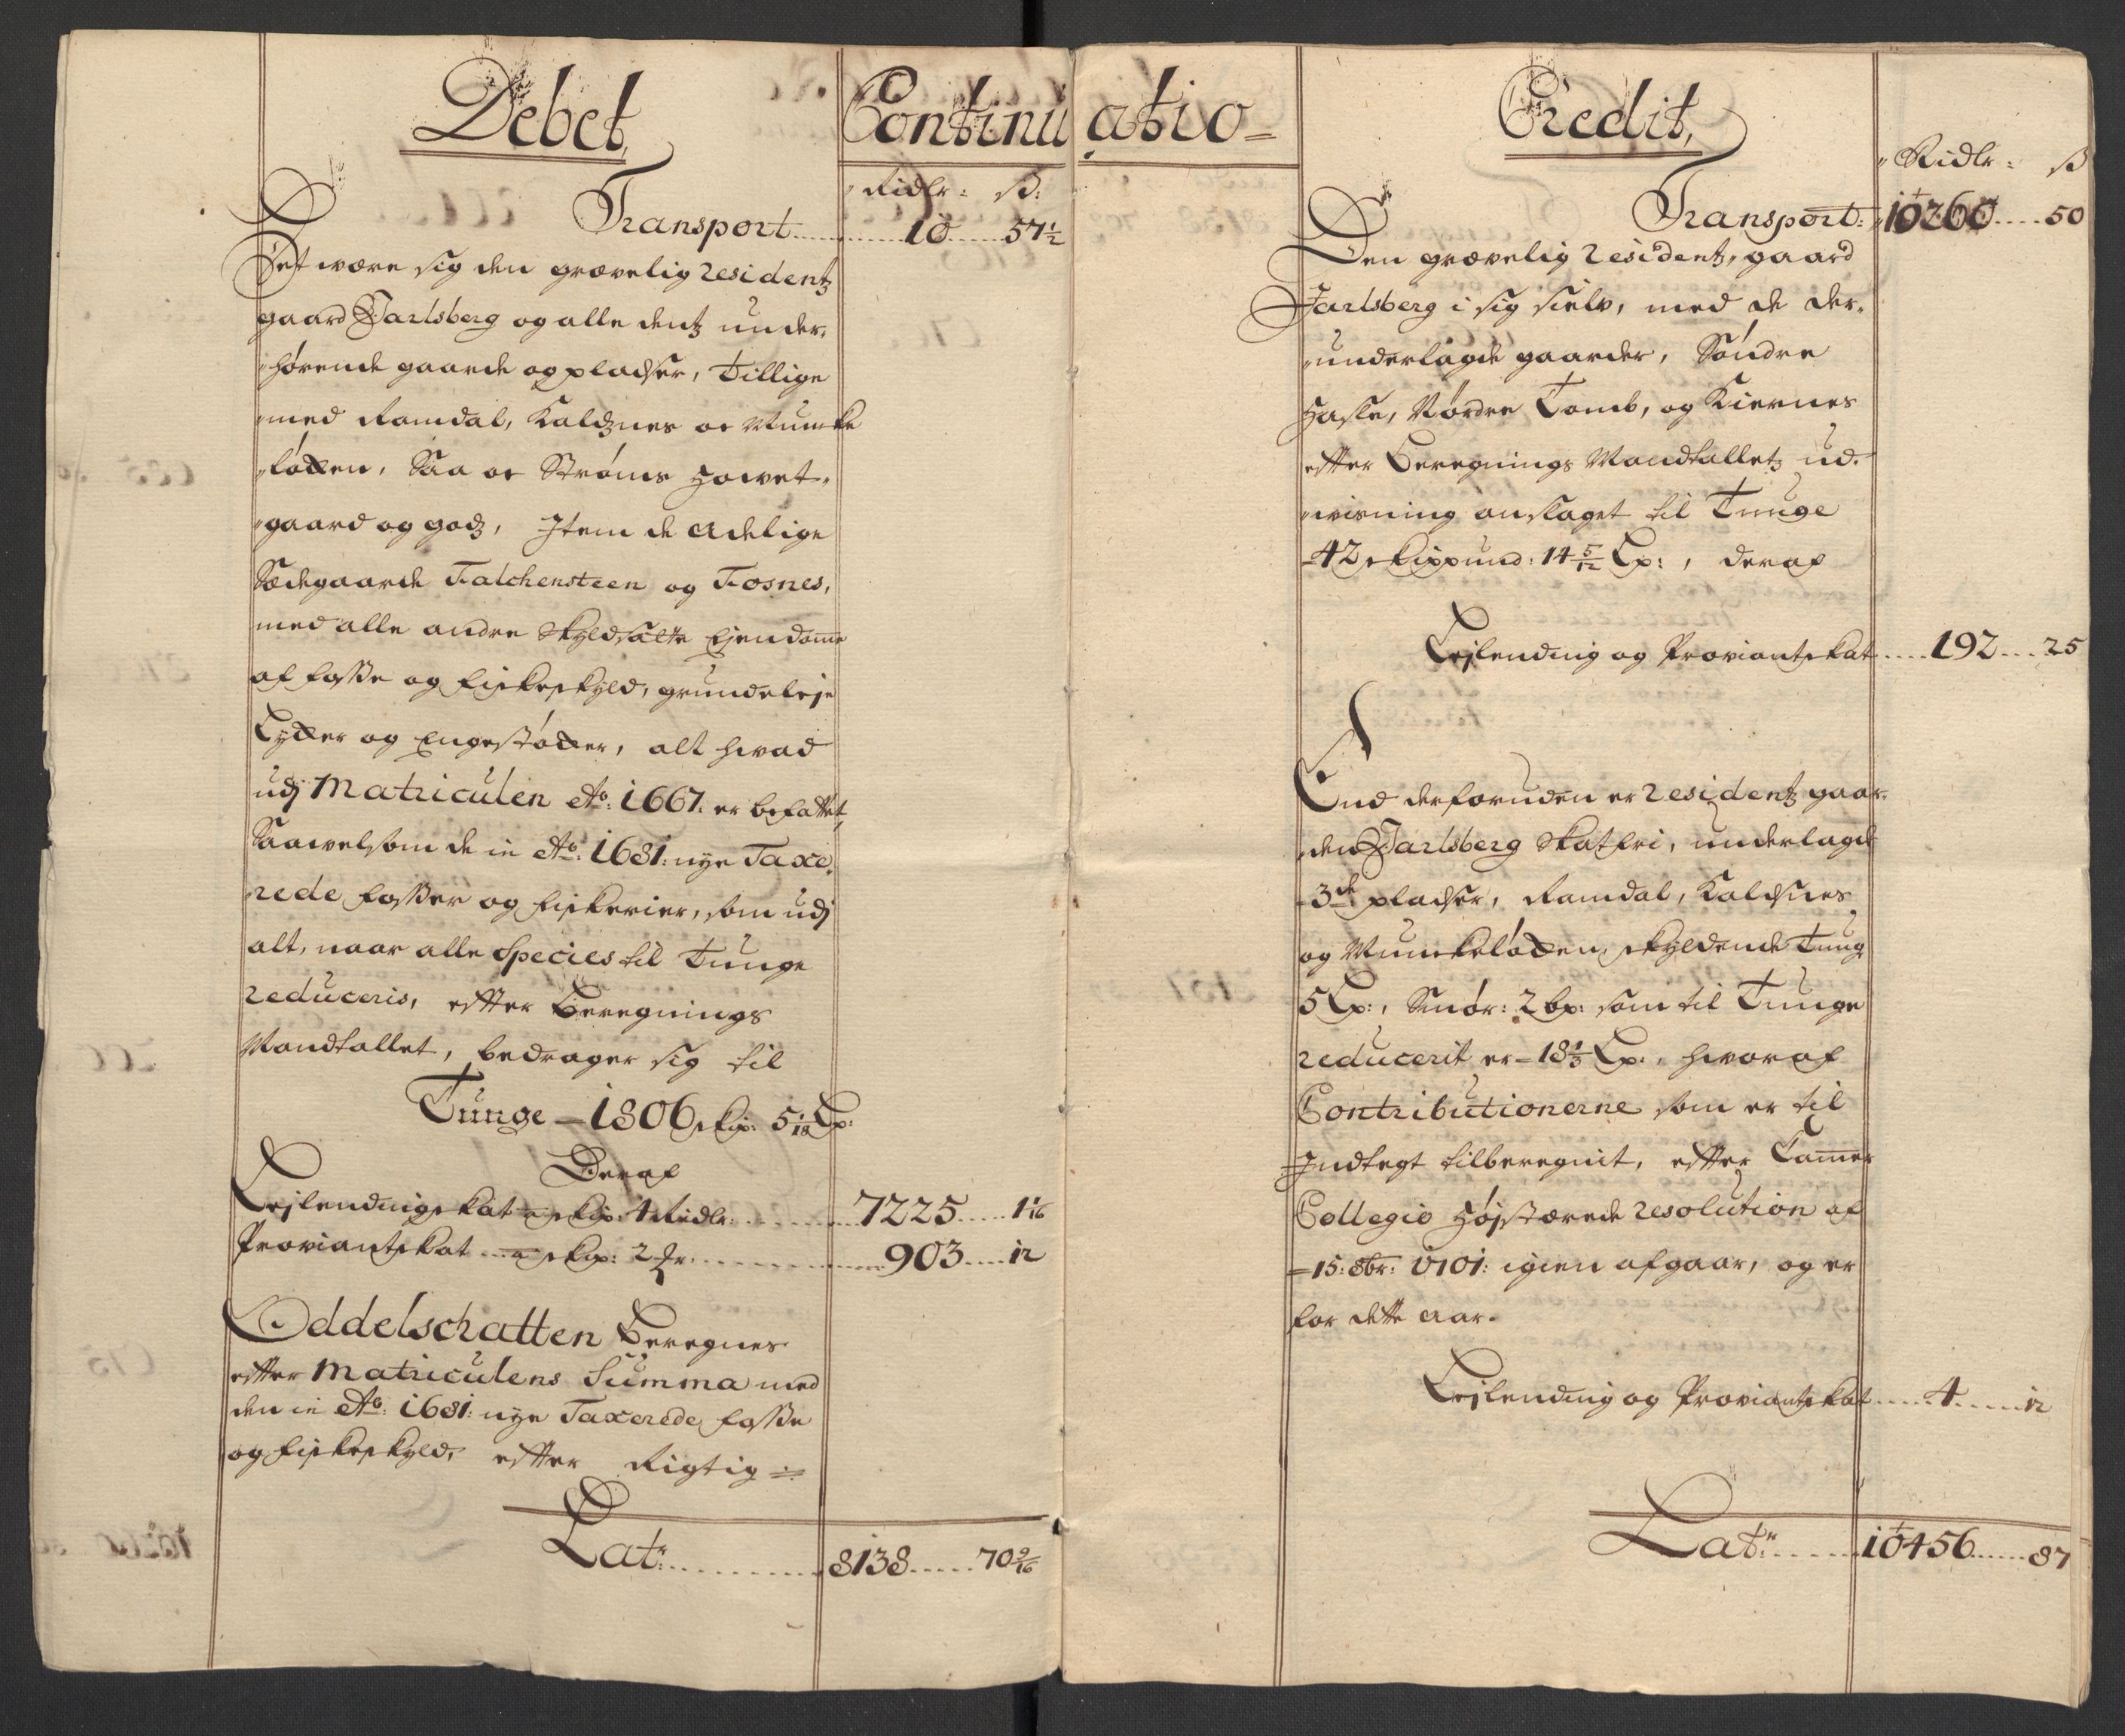 Debet,
Continu atio
Credit,
Ridlr: ß:
Transport 10 57 1/2
Det være sig den grævelig Residentz
gaard Jarlsberg og alle dentz under
hørende gaarde og pladser, tillige
med Ramdal, Kaldznes oc Muncke
løcken, Saa oc Strøms Howet
gaard og godz, Item de Adelige
Sædegaarde Falchensteen og Fosnes,
med alle andre Skyldsatte Eiendomme
af Fosse og Fiskeskyld, grundeleje
Løcker og Engestøcker, alt hvad
udj Matriculen Ao: 1667: er befattet,
Saavelsom de in Ao: 1681: nye Taxe
rede Fosser og Fiskerier, som udj
alt, naar alle Species til Tunge
reduceris, effter Beregnings
Mandtallet, bedrager sig til
Tunge - 1806 skip: 5 1/18 Lp:
Deraf
Lejlendingskat a skip: 4 Ridlr: 7225 1 1/16
Proviantskat a skip: 2 Ort 903 12
Oddelschatten Beregnes
effter Matriculens Summa med
den in Ao: 1681: nye Taxerede Fosse
og Fiskeskyld, effter Rigtig
Latr: 8138 70 9/16
Ridlr: ß
Transport: 10260 50
Den grævelig Residentz, gaard
Jarlsberg i sig sielv, med de der
underlagde gaarder, Søndre
Hasle, Nordre Tomb, og Kiernes
effter Beregnings Mandtalletz ud
viisning anslaget til Tunge
42 skippund: 14 5/12 Lp:, deraf
Lejlending og Proviantskat 192 25
End derforuden er Residentz gaar
den Jarlsberg Skatfri, underlagt
3de pladser, Ramdal, Kaldsnes
og Munkeløcken, skyldende Tung
5 Lp:, Smør: 2 bp: som til Tunge
reducerit er - 18 1/3 Lp:, hvoraf
Contributionerne som er til
Indtegt tilberegnit, effter Cammer
Collegio Højstærede Resolution af
15: 8br: 1701: igien afgaar, og er
for dette Aar.
Lejlending og Proviantskat 4 12
Latr: 10456 87